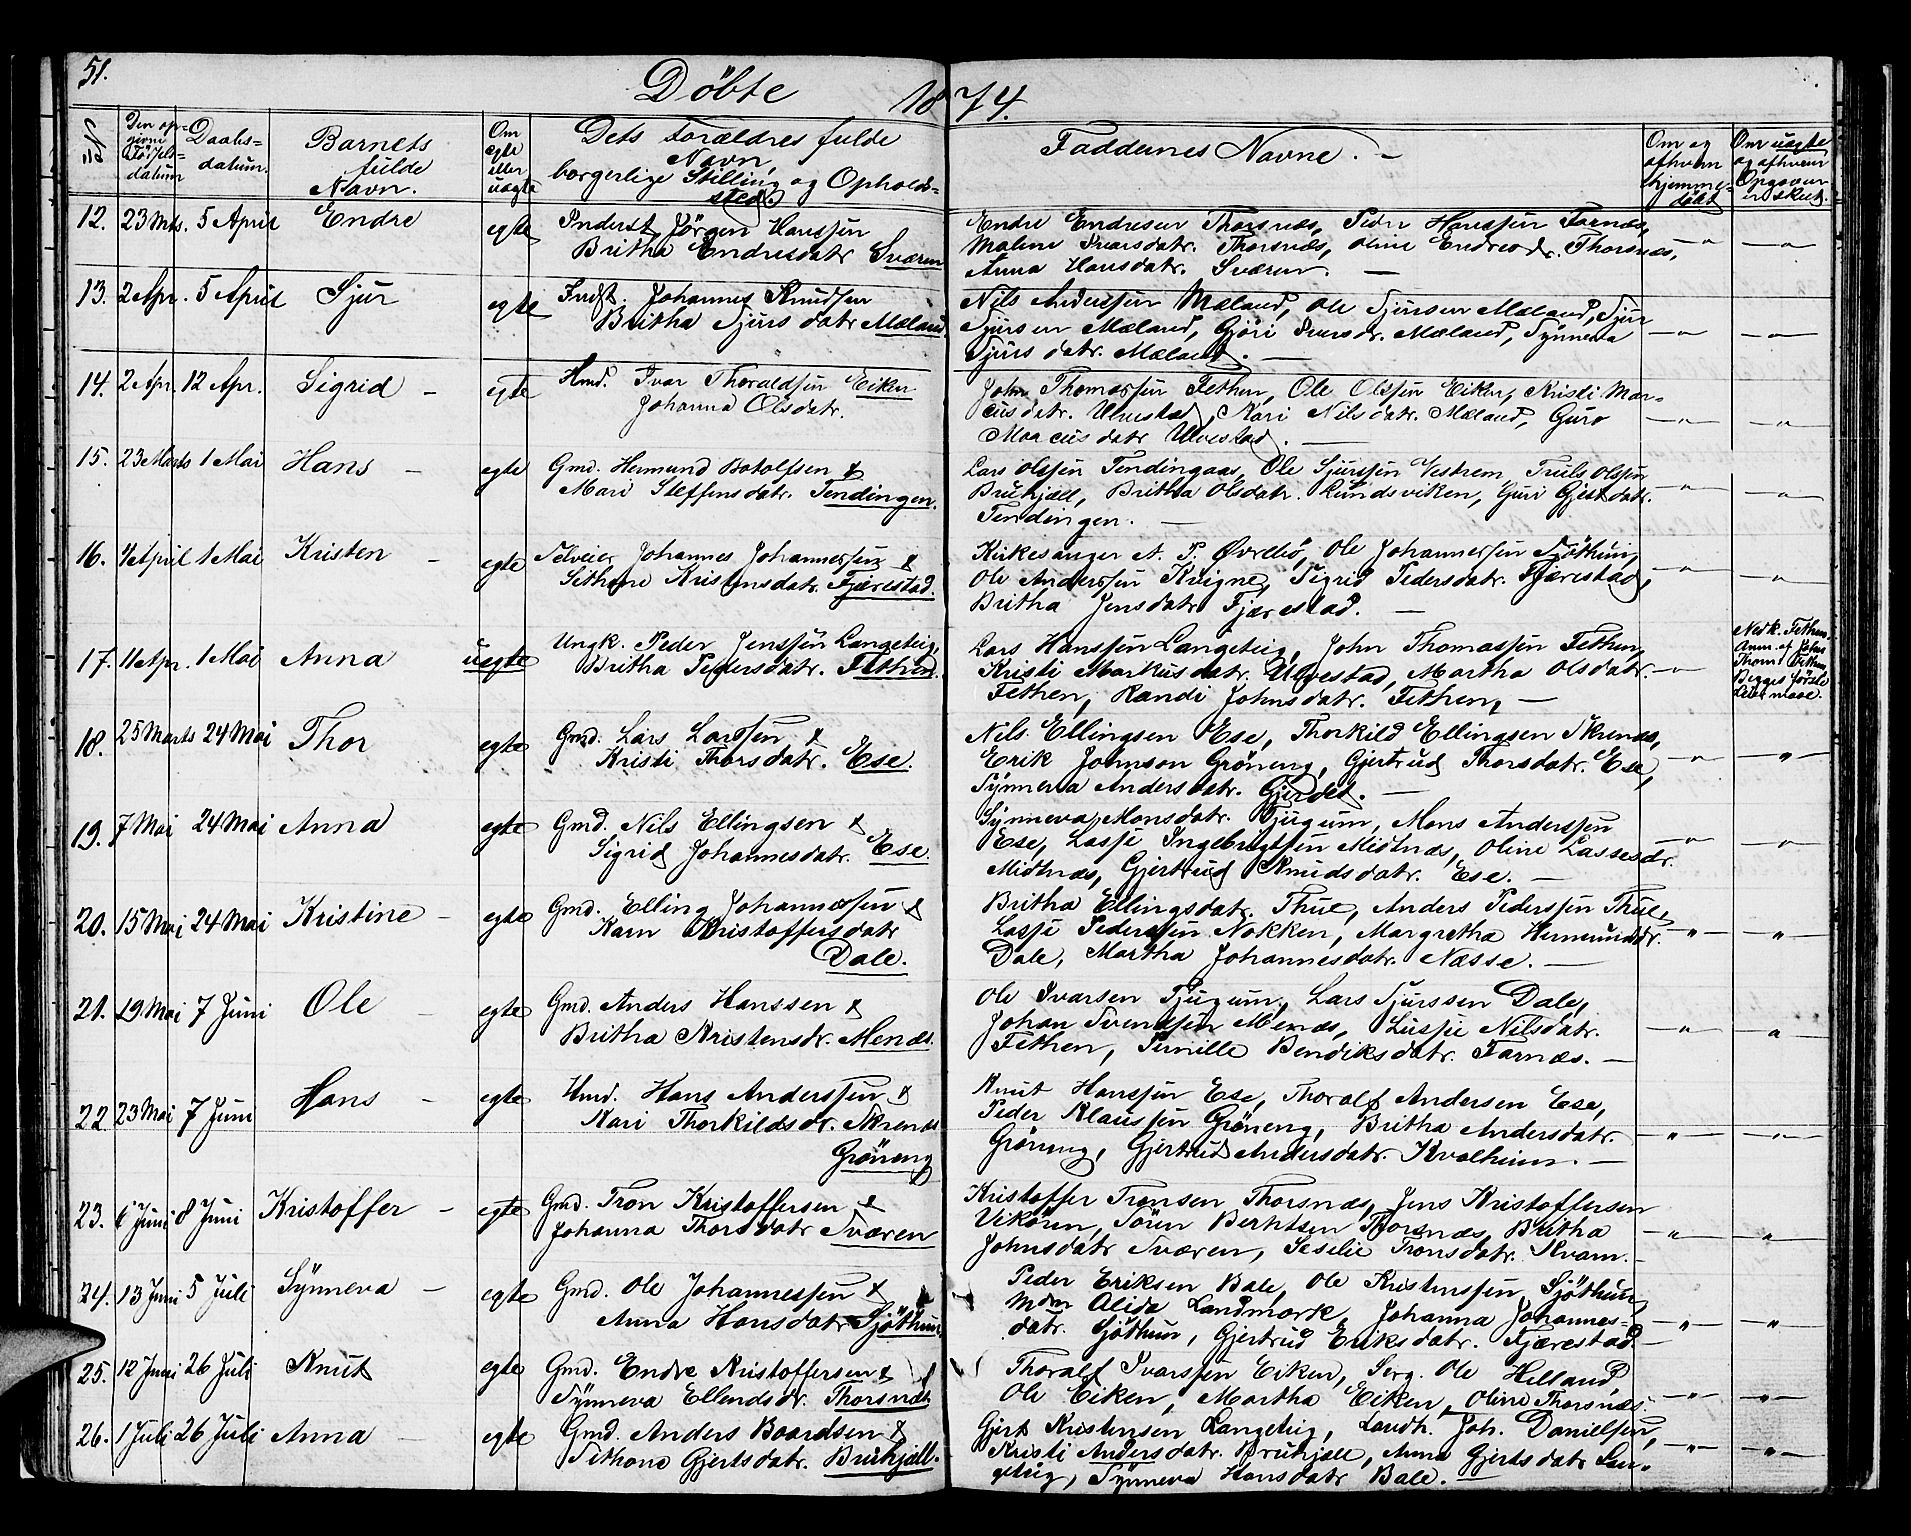 51.
Döbte 1874.
No
Den op-
givne
Födsels-
datum
Daabs-
datum.
Barnets
fulde
Navn.
Om
egte
eller
uægte
Dets Forældres fulde
Navn,
borgerlige Stilling og Opholds-
sted.
Faddernes Navne. –
Om og
afhvem
hjemme-
döbt
Om uægte
og afhvem
Opgaver
er skeet.
12. 23 Mts. 5 April Endre egte Inderst Jörgen Hanssen
Britha Endresdatr Sværen
Endre Endresen Thorsnæs, Peder Hanssen Farnæs,
Malene Ivarsdatr. Thorsnæs, Oline Endresd. Thorsnæs,
Anna Hansdatr. Sværen. –
13. 2 Apr. 5 April Sjur egte Indst. Johannes Knudsen
Britha Sjurs datr Mæland.
Nils Anderssen Mæland, Ole Sjursen Mæland, Sjur
Sjursen Mæland, Gjöri Ivarsdr. Mæland, Synneva
Sjurs datr. Mæland. –
14. 2 Apr. 12 Apr. Sigrid – egte Hmd. Ivar Thoraldsen Eiken
Johanna Olsdatr.
John Thomassen Fethen, Ole Olssen Eiken, Kristi Mar-
cusdatr. Ulvestad, Kari Nilsdatr. Mæland, Guro
Marcus datr Ulvestad. –
15. 23 Marts 1 Mai Hans – egte Gmd. Hermund Botolfsen &
Mari Steffensdatr. Tendingen.
Lars Olssen Tendingaas, Ole Sjurssen Vestrem, Truls Olssen
Bruhjell, Britha Olsdatr. Rundsviken, Guri Gjertdatr.
Tendingen. –
16. 4 April 1 Mai Kristen – egte Selveier Johannes Johannessen &
Sithone Kristensdatr. Fjærestad.
Kirkesanger A. P. Øvrebö, Ole Johannessen Sjöthun,
Ole Anderssen Kvigne, Sigrid Pedersdatr. Fjærestad,
Britha Jensdatr Fjærestad. –
17. 11 Apr. 1 Mai Anna uegte Ungk. Peder Jenssen Langeteig,
Britha Pedersdatr. Fethen.
Lars Hanssen Langeteig, John Thomassen Fethen,
Kristi Markusdatr. Ulvestad, Martha Olsdatr.
Fethen, Randi Johnsdatr. Fethen, –
Nedk. Fethen.
Anm. af John
Thoms. Fethen,
Begges förste
Leiermaal.
18. 25 Marts 24 Mai Thor egte Gmd. Lars Larssen &
Kristi Thorsdatr. Ese.
Nils Ellingsen Ese, Thorkild Ellingsen Skrenæs,
Erik Johnson Gröneng, Gjertrud Thorsdatr. Ese,
Synneva Andersdatr. Gjerdet. –
19. 7 Mai 24 Mai Anna egte Gmd. Nils Ellingsen &
Sigrid Johannesdatr. Ese.
Synneva Monsdatr. Tjugum, Mons Anderssen
Ese, Lasse Ingebrigtsen Midtnæs, Oline Lassesdr.
Midtnæs, Gjertrud Knudsdatr. Ese. –
20. 15 Mai 24 Mai Kristine – egte Gmd. Elling Johannessen &
Karn Kristoffersdatr
Dale.
Britha Ellingsdatr. Thue, Anders Pederssen Thue,
Lasse Pederssen Nokken, Margretha Hermundsdr.
Dale, Martha Johannesdatr. Næsse. –
21. 19 Mai 7 Juni Ole – egte Gmd. Anders Hanssen &
Britha Kristensdr. Menæs.
Ole Ivarsen Tjugum, Lars Sjurssen Dale,
Johan Svendsen Menæs, Lussie Nilsdatr.
Fethen, Pernille Bendiksdatr. Farnæs. –
22 23 Mai 7 Juni Hans – egte Hmd. Hans Anderssen &
Kari Thorkildsdr. Skrenæs
Gröneng
Knut Hanssen Ese, Thoralf Andersen Ese,
Peder Klaussen Gröneng, Britha Andersdatr.
Gröneng, Gjertrud Andersdatr. Kvalheim. –
23. 6 Juni 8 Juni Kristoffer – egte Gmd. Tron Kristoffersen &
Johanna Thorsdatr Sværen
Kristoffer Tronsen Thorsnæs, Jens Kristoffersen
Vikören, Sören Berntsen Thorsnæs, Britha
Johnsdatr Sværen, Seselie Tronsdatr. Kvam. –
24. 13 Juni 5 Juli Synneva – egte Gmd. Ole Johannessen &
Anna Hansdatr Sjöthun.
Peder Eriksen Bale, Ole Kristenssen Sjöthun,
Mdm Alida Landmark, Johanna Johannes-
datr. Sjöthun, Gjertrud Eriksdatr. Fjærestad.
25. 12 Juni 26 Juli Knut egte Gmd. Endre Kristoffersen &
Synneva Ellendsdr. Thorsnæs.
Thoralf Ivarssen Eiken, Serg. Ole Helland,
Ole Eiken, Martha Eiken, Oline Thorsnæs.
26. 1 Juli 26 Juli Anna – egte Gmd. Anders Baardsen &
Sithone Gjertsdatr. Bruhjell.
Gjert Kristensen Langeteig, Landh. Joh. Danielsen,
Kristi Andersdatr. Bruhjell, Anna Gjertsdatr Lan-
geteig, Synneva Hansdatr Bale. –